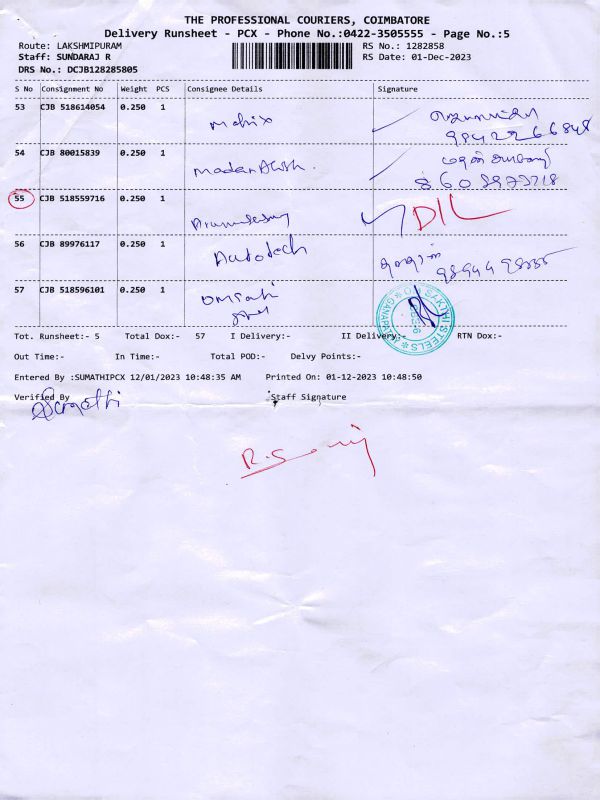 THE PROFESSIONAL COURIERS, COIMBATORE
Delivery Runsheet - PCX - Phone No.:0422-3505555 - Page No.:5
Route: LAKSHMIPURAM RS No.: 1282858
Staff: SUNDARAJ R RS Date: 01-Dec-2023
DRS No.: DCJB128285805
S No Consignment No Weight PCS Consignee Details Signature
53 CJB 518614054 0.250 1 Matrix
54 CJB 80015839 0.250 1
55 CJB 518559716 0.250 1 D/L
56 CJB 89976117 0.250 1 Autotech
57 CJB 518596101 0.250 1 Omsakthi
SAKTHI STEELS
Tot. Runsheet:- 5 Total Dox:- 57 I Delivery:- II Delivery:- RTN Dox:-
Out Time:- In Time:- Total POD:- Delvy Points:-
Entered By :SUMATHIPCX 12/01/2023 10:48:35 AM Printed On: 01-12-2023 10:48:50
Verified By Staff Signature
Sumathi